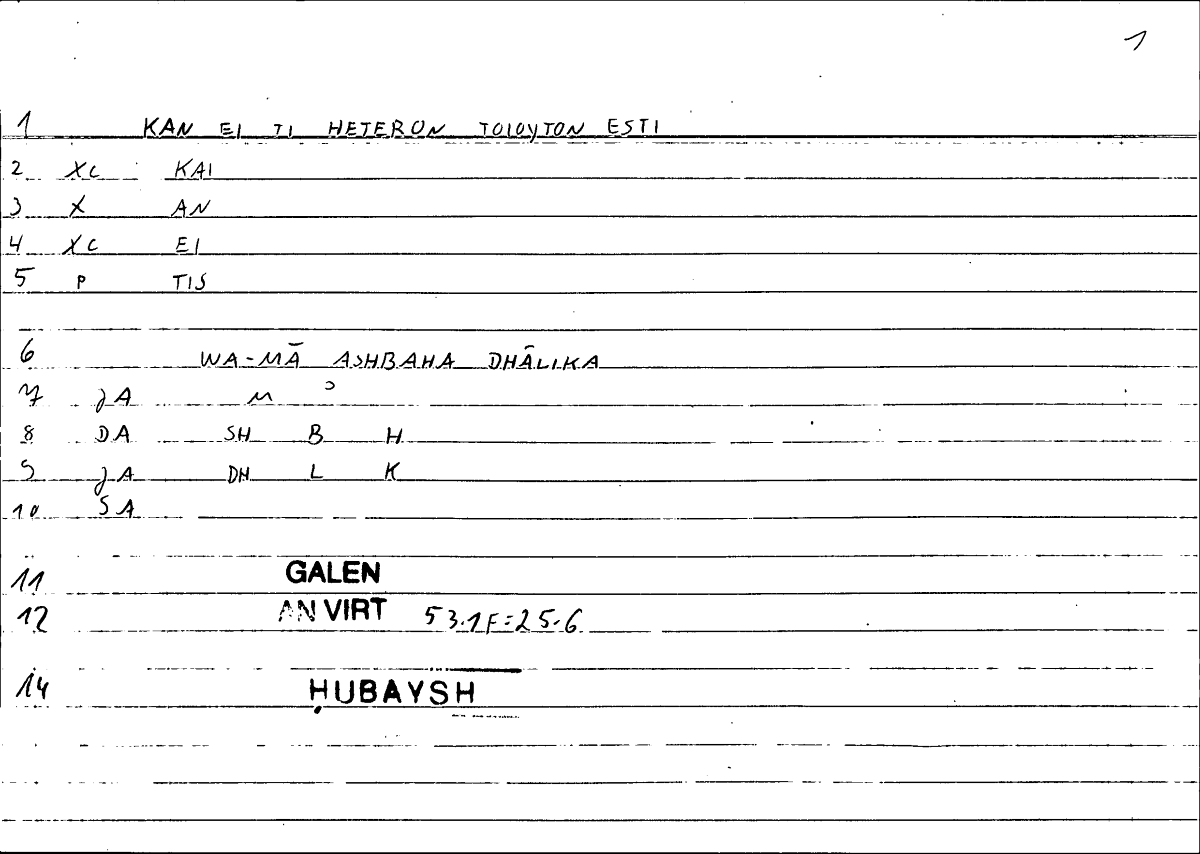 1
1 KAN EI TI HETERON TOIOYTON ESTI
2 XC KAI
3 X AN
4 XC EI
5 P TIS
6 WA-MĀ ASHBAHA DHĀLIKA
7 JA M ʾ
8 DA SH B H
9 JA DH L K
10 SA
11 GALEN
12 AN VIRT 53.1F=25.6
14 ḤUBAYSH